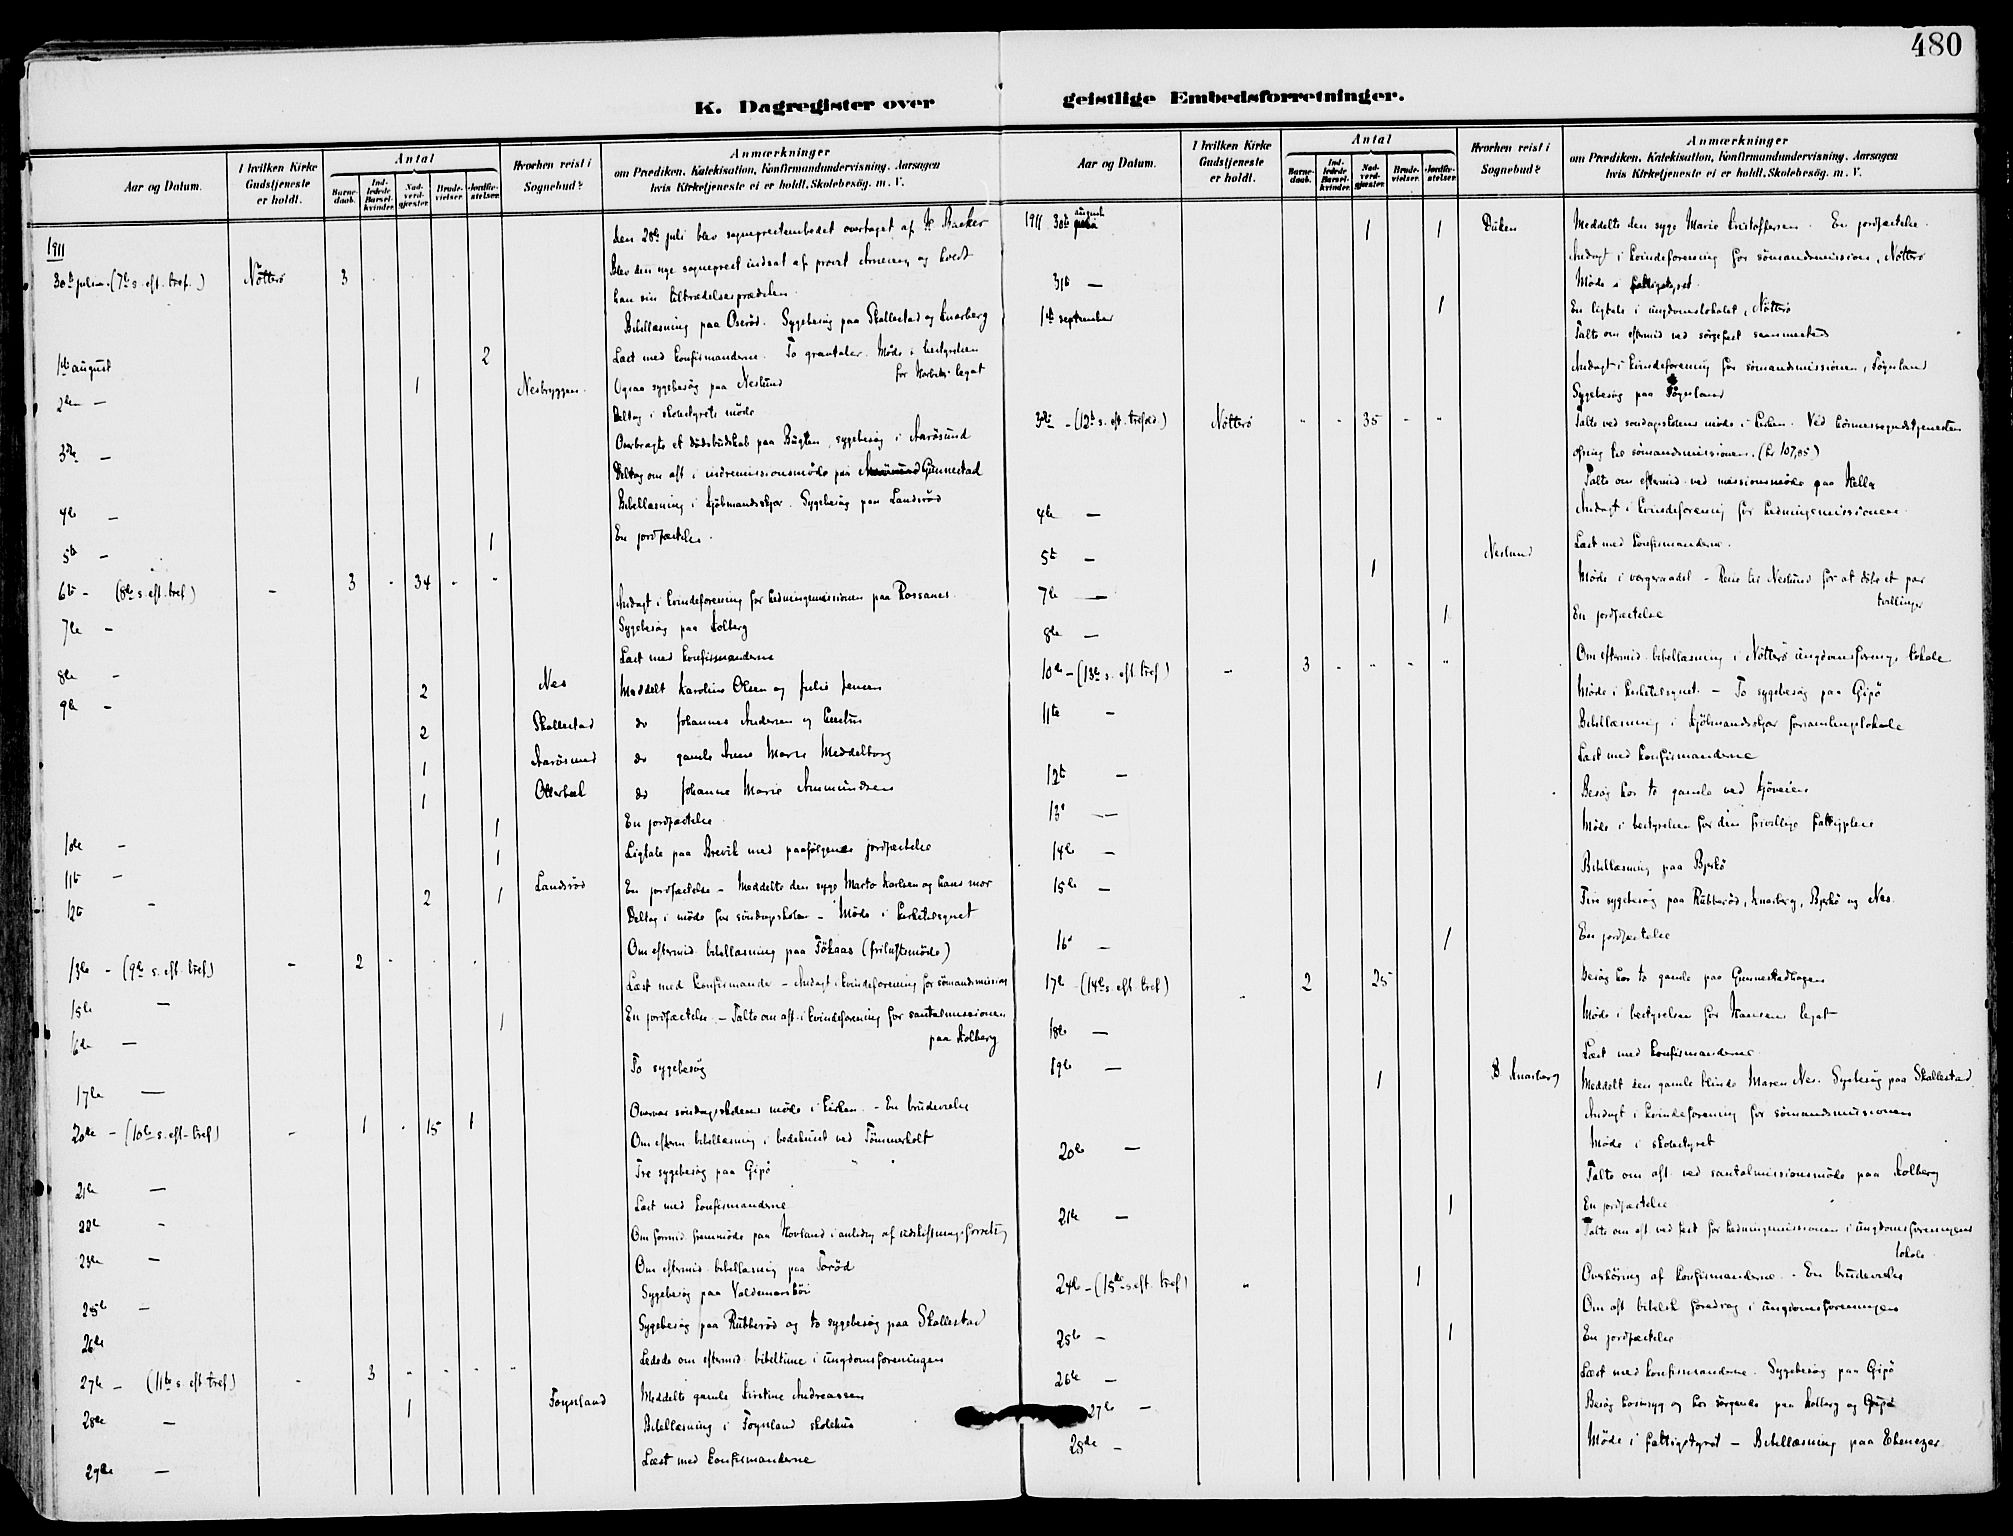 480
K. Dagregister over geistlige Embedsforretninger.
Aar og Datum.
I hvilken Kirke Gudstjeneste er holdt.
Antal
Barne-daab.
Ind-ledede Barsel-kvinder.
Nad-verd-gjæster.
Brude-vielser.
Jordfæ-stelser.
Hvorhen reist i Sognebud?
Anmærkninger
om Prædiken, Katekisation, Konfirmandundervisning, Aarsagen
hvis Kirketjeneste ei er holdt, Skolebesøg, m. V.
1911
Den 28de juli blev sogneprestembedet overtaget af H. Backer
30te julem. (7de s. eft. tref.) Nøtterø 3 Blev den nye sogneprest indsat af provst Amening og holdt
han sin tiltrædelsesprædiken.
Bibellæsning paa Oserød. Sygebesøg paa Skallestad og Knarberg
1ste august 2 Læst med konfirmanderne. To gravtaler. Møde i bestyrelsen
for legat
2den — 1 Nesbryggen. Ogsaa sygebesøg paa Neslund
Deltog i skolestyrets møde
3die — Overbragte et dødsbudskab paa Bugten, sygebesøg i Aarøsund
Deltog om aft. i indremissionsmøde paa Gunnestad
4de — Bibellæsning i Kjøbmandskjær. Sygebesøg paa Landsrød
5te — 1 En jordfæstelse.
6te - (8de s. eft. tref) - 3 - 34 - -
7de — Andagt i kvindeforening for hedningemissionen paa Rossanes.
Sygebesøg paa Kolberg
8de — Læst med konfirmanderne
9de — 2 Nes Meddelt Karoline Olsen og Julie Jensen
2 Skallestad do Johannes Andersen og hustru
1 Aarøsund do gamle Anne Marie Meddelborg
1 Oterbæk do Johanne Marie Ammundsen
10de — 1 En jordfæstelse
11te — 1 Ligtale paa Brevik med paafølgende jordfæstelse
12te — 2 1 Landsrød En jordfæstelse - Meddelte den syge Marta Karlsen og hans mor
Deltog i møde for søndagsskolen - Møde i kirketilsynet
13de - (9de s. eft. tref) - 2 - Om eftermid. bibellæsning paa Føksaas (friluftsmøde)
15de — Læst med konfirmande - Andagt i kvindeforening for sømandsmission
16de — 1 En jordfæstelse. - Talte om aft. i kvindeforening for santalmissionen
paa Kolberg
17de — To sygebesøg
20de - (10de s. eft. tref) - 1 - 15 1 Overvar søndagsskolens møde i kirken. - En brudevielse
Om efterm. bibellæsning i bedehuset ved Tømmerholt
21de — Tre sygebesøg paa Gipø
22de - Læst med konfirmanderne
23de — Om formid. fremmøde paa Hovland i anledn. af udskiftningsforretn
Om eftermid. bibellæsning paa Torød
25de — Sygebesøg paa Valdemarsbø
26de Sygebesøg paa Rubberød og to sygebesøg paa Skallestad
27de - (11te s. eft. tref) - 3 - - - - Ledede om eftermid. bibeltime i ungdomsforeningen
28de — 1 Føynland Meddelte gamle Kirstine Andreassen
Bibellæsning i Føynland skolehus
29de — Læst med konfirmanderne
Aar og Datum.
I hvilken Kirke Gudstjeneste er holdt.
Antal
Barne-daab.
Ind-ledede Barsel-kvinder.
Nad-verd-gjæster.
Brude-vielser.
Jordfæ-stelser.
Hvorhen reist i Sognebud?
Anmærkninger
om Prædiken, Katekisation, Konfirmandundervisning, Aarsagen
hvis Kirketjeneste ei er holdt, Skolebesøg, m. V.
1911 30te august 1 1 Duken Meddelte den syge Marie Kristoffersen. En jordfæstelse.
Andagt i kvindeforening for sømandsmission, Nøtterø
31te — Møde i fattigstyret.
1ste september 1 En ligtale i ungdomslokalet, Nøtterø
Talte om eftermid ved sørgefest sammesteds
Andagt i kvindeforening for sømandsmissionen, Føynland
Sygebesøg paa Føynland
3die - (12te s. eft. trefold.) Nøtterø - - 35 - - Talte ved søndagsskolens møde i kirken. Ved
ofring til sømandsmissionen. (kr 107,85)
Talte om eftermid. ved missionsmøde paa Hella
4de — Andagt i kvindeforening for hedningemissionen.
5te — 1 Neslund Læst med konfirmanderne.
Møde i vergeraadet - Reise til Neslund for at døbe et par
tvillinger
7de — 1 En jordfæstelse
8de —
10de - (13de s. eft. tref) - 3 - - - - Om eftermid. bibellæsning i Nøtterø ungdomsforenings lokale
11te — Møde i kirketilsynet. - To sygebesøg paa Gipø
Bibellæsning i Kjøbmandskjær forsamlingslokale
12te — Læst med konfirmanderne
13de — Besøg hos to gamle ved Kjøveien
14de — Møde i bestyrelsen for den frivillige fattigpleie
15de — Bibellæsning paa Bjerkø
Fire sygebesøg paa Rubberød, Knarberg, Bjerkø og Nes.
16de — 1 En jordfæstelse
17de - (14de s. eft. tref) - 2 25 Besøg hos to gamle paa Gunnestadhagen
18de — Møde i bestyrelsen for Hansens legat
19de — Læst med konfirmanderne
1 Knarberg Meddelt den gamle blinde Maren Nes. Sygebesøg paa Skallestad
Andagt i kvindeforening for sømandsmissionen
20de — Møde i skolestyret
Talte om aft. ved santalmissionsmøde paa Kolberg
21de — 1 En jordfæstelse
Talte om aft. ved fest for hedningemissionen i ungdomsforeningens
lokale.
24de - (15de s. eft. tref) - 1 Overhøring af konfirmanderne. - En brudevielse
Om aft. bibelsk foredrag i ungdomsforeningen
25de — 1 En jordfæstelse
26de — Læst med konfirmanderne. Sygebesøg paa Gipø
27de — Besøg hos syg og hos sørgende paa Kolberg og Gipø
28de — Møde i fattigstyret - Bibellæsning paa Ebenezer.